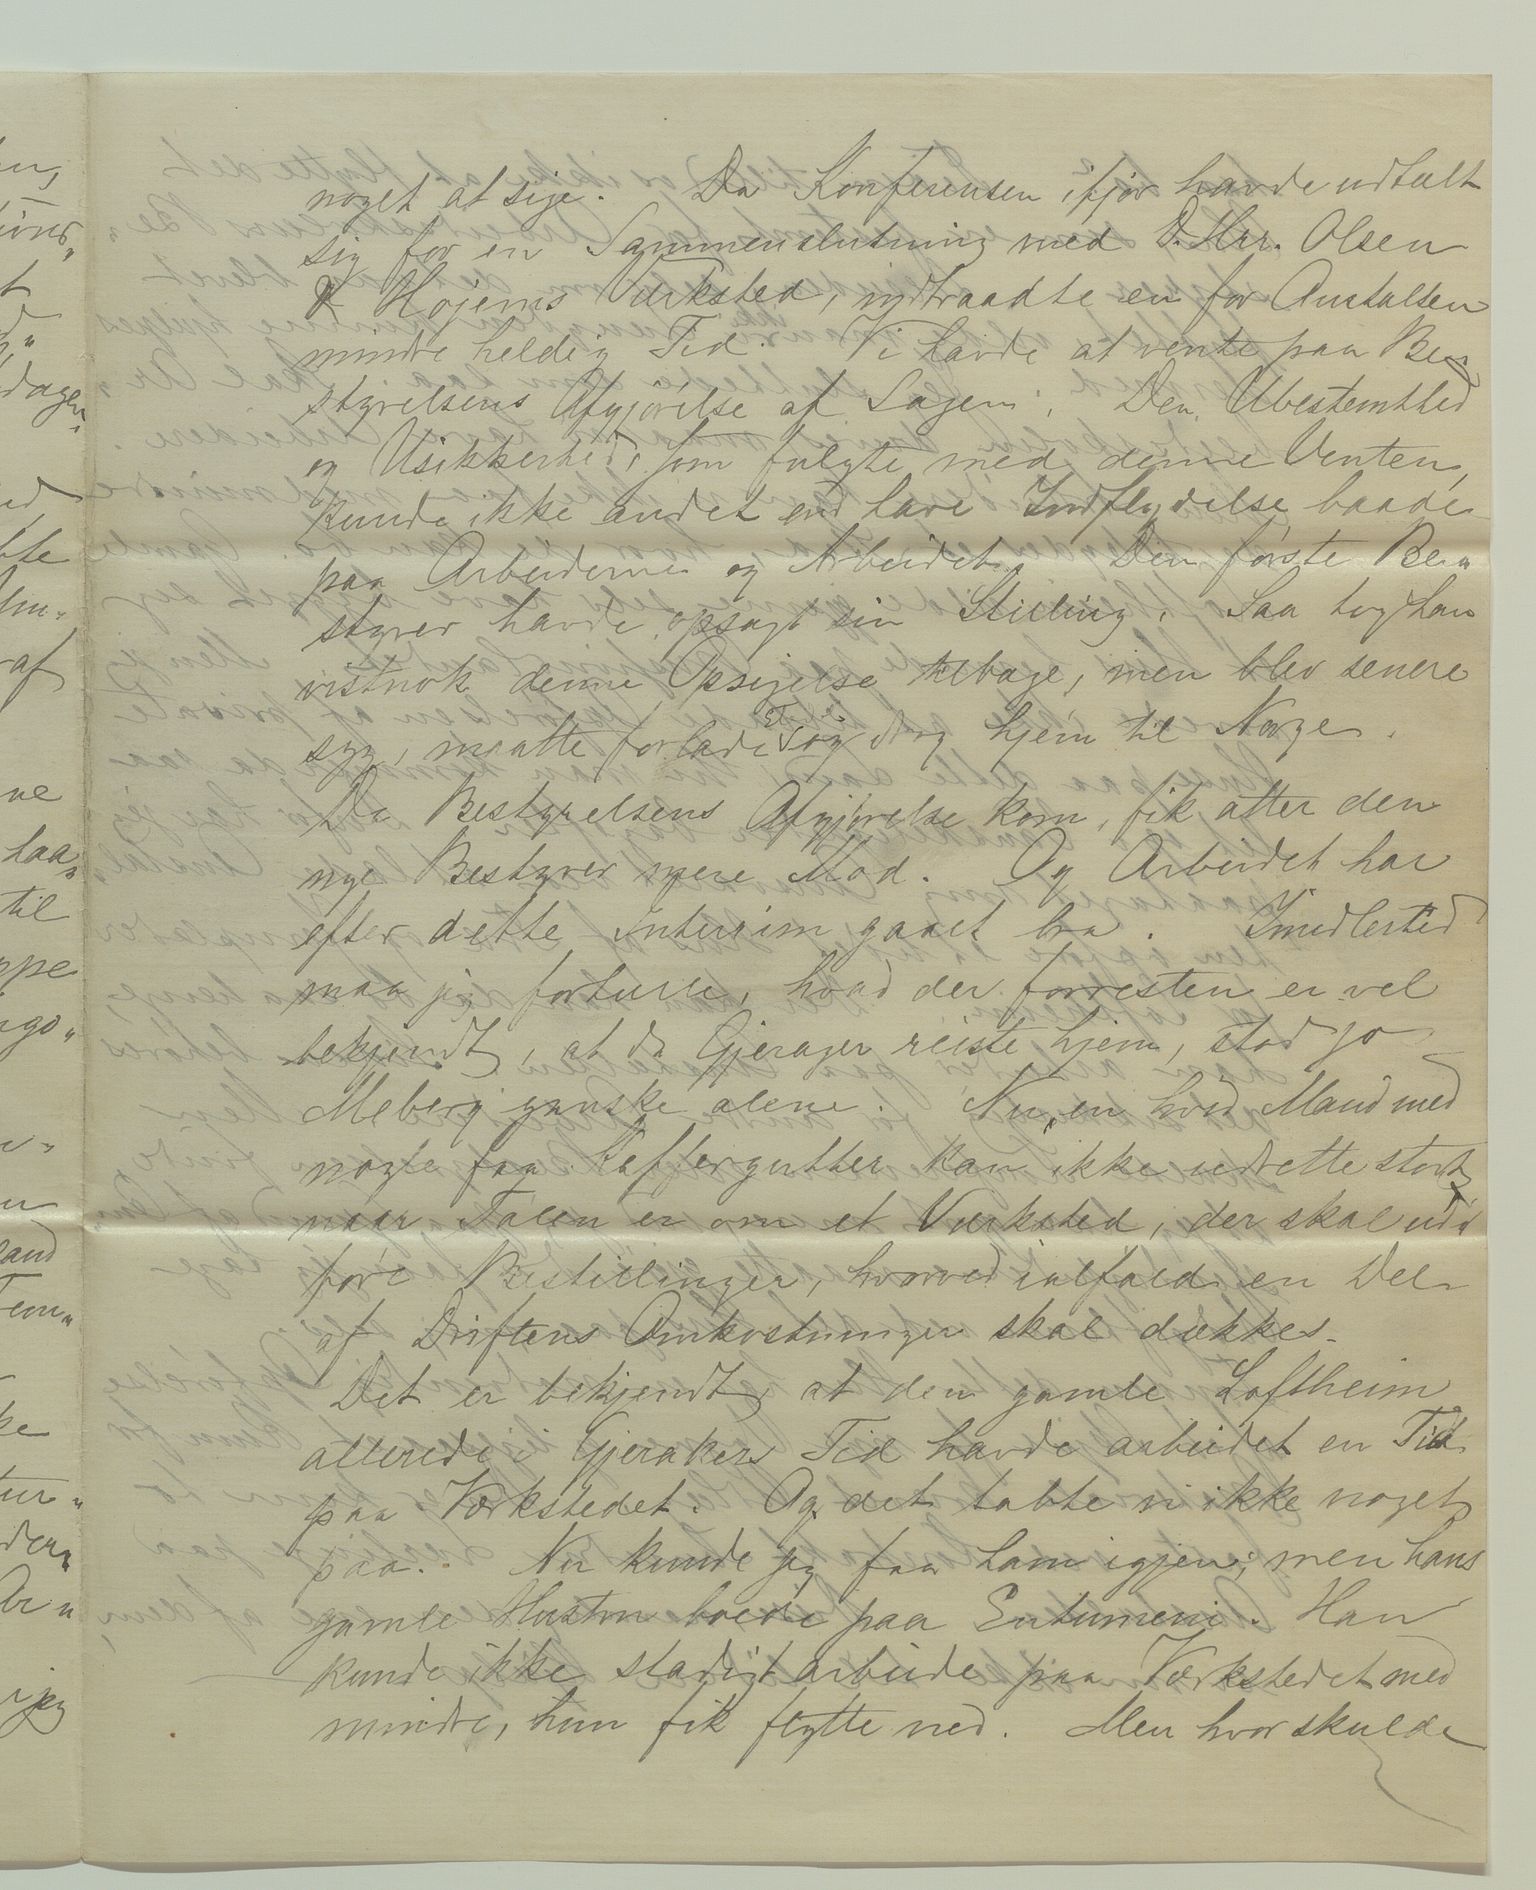 noget at sige. Da Konferensen ifjor havde udtalt
sig for en Sammenslutning med D. Hrr. Olsen
& Højems Værksted, indtraadte en for Anstalten
mindre heldig Tid. Vi havde at vente paa Be„
styrelsens Afgjørelse af Sagen. Den Ubestemthed
og Usikkerhed, som fulgte med denne Venten,
kunde ikke andet end have Indflydelse baade
paa Arbeiderne og Arbeidet. Den første Be„
styrer havde opsagt sin Stilling. Saa tog han
vistnok denne Opsigelse tilbage, men blev senere
syg, maatte forlade og drog hjem til Norge.
Da Bestyrelsens Afgjørelse kom, fik atter den
nye Bestyrer mere Mod. Og Arbeidet har
efter dette Interim gaaet bra. Imidlertid
maa jeg fortælle, hvad der forresten er vel
bekjendt, at da Gjerager reiste hjem, stod jo
Meberg ganske alene. Nu, en hvid Mand med
nogle faa Kaffergutter kan ikke udrette stort,
naar Talen er om et Værksted, der skal ud„
føre Bestillinger, hvorved ialfald en Del
af Driftens Omkostninger skal dækkes.
Det er bekjendt, at den gamle Loftheim
allerede i Gjerakers Tid havde arbeidet en Tid
paa Værkstedet. Og det tabte vi ikke noget
paa. Nu kunde jeg faa ham igjen; men hans
gamle Hustru boede paa Entumeni. Han
kunde ikke stadigt arbeide paa Værkstedet med
mindre, hun fik flytte ned. Men hvor skulde